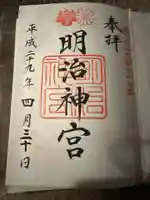 奉拝
明治神宮
平成二十九年四月三十日